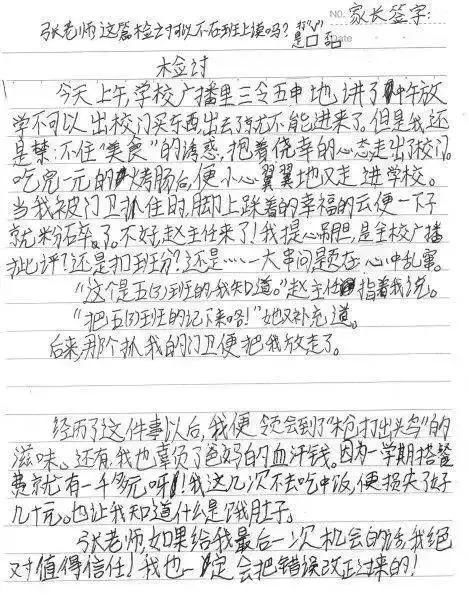 NO. 家长签字:
张老师这篇检讨可以不在班上读吗? 打"√"
是□ 否□
Date
检讨
今天上午,学校广播里三令五申地讲了中午放
学不可以出校门买东西,出去了就不能进来了。但是我还
是禁不住"美食"的诱惑,抱着侥幸的心态走出了校门。
吃完一元的烤肠后,便小心翼翼地又走进学校。
当我被门卫抓住的时,脚上踩着的幸福的云便一下子
就粉碎了。不好,赵主任来了!我提心吊胆,是全校广播
批评?还是扣班分?还是……一大串问题在心中乱窜。
"这个是五(3)班的,我知道。"赵主任指着我说。
"把五(3)班的记下来哈!"她又补充道。
后来,那个抓我的门卫便把我放走了。
经历了这件事以后,我便领会到了"枪打出头鸟"的
滋味。还有,我也辜负了爸妈的血汗钱。因为一学期搭餐
费就有一千多元呀!我这几次不去吃中饭,便损失了好
几十元。也让我知道什么是饿肚子。
张老师,如果给我最后一次机会的话,我绝
对值得信任!我也一定会把错误改正过来的!